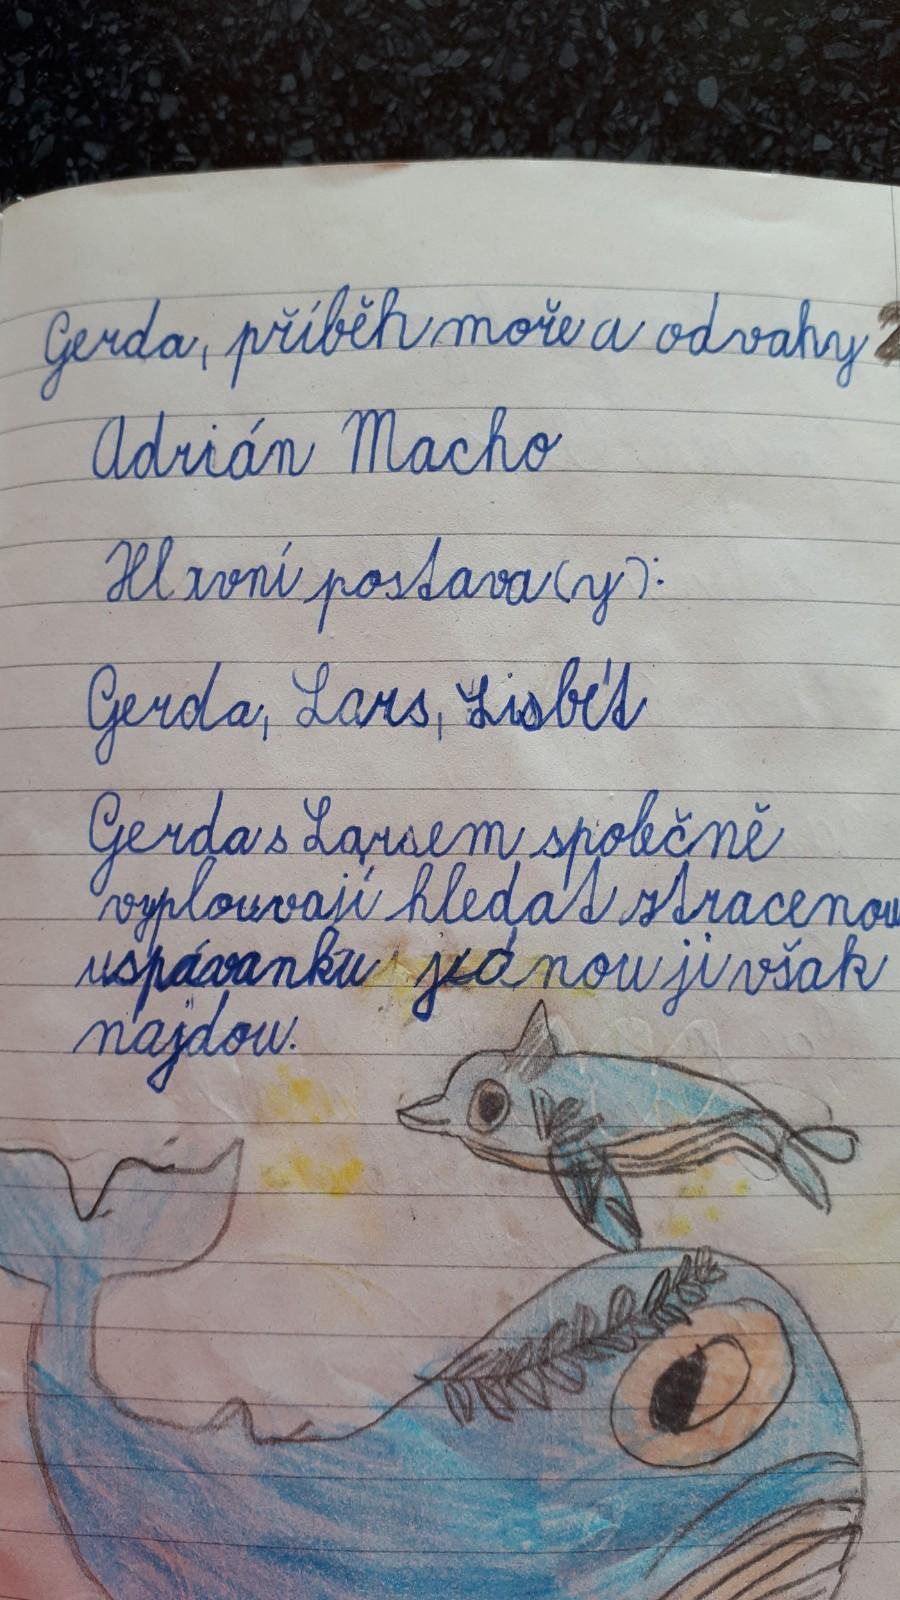 Gerda, příběh moře a odvahy 2
Adrián Macho
Hlavní postava(y):
Gerda, Lars, Lisbét
Gerda s Larsem společně
vyplouvají hledat ztracenou
uspávanku jednou ji však
najdou.